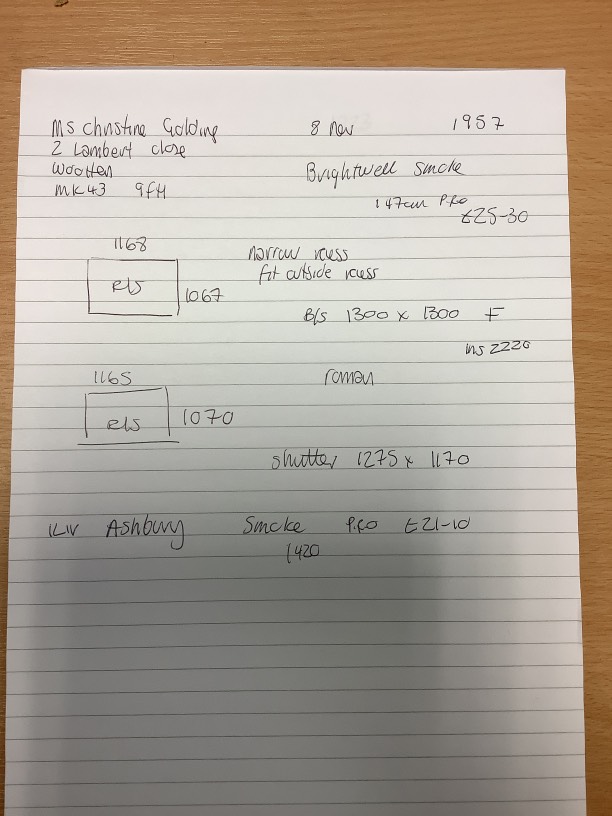 Ms Christine Golding 8 Nov 1957
2 Lambert close
Wootten Brightwell Smoke
MK43 9FH 147cm P.Ro
£25-30
1168 narrow recess
R/S 1067 fit outside recess
B/S 1300 x 1300 F
ins 2220
1165 roman
R/S 1070
shutter 1275 x 1170
ILIV Ashbury Smoke P.Ro £21-10
1420